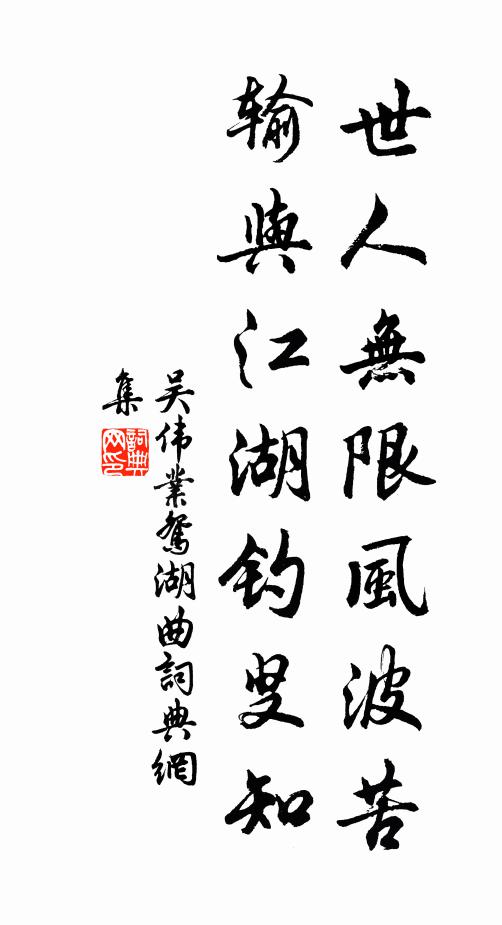 世人無限風波苦
輸與江湖釣叟知
吴伟業鴛湖曲詞典網
集
詞典
网印